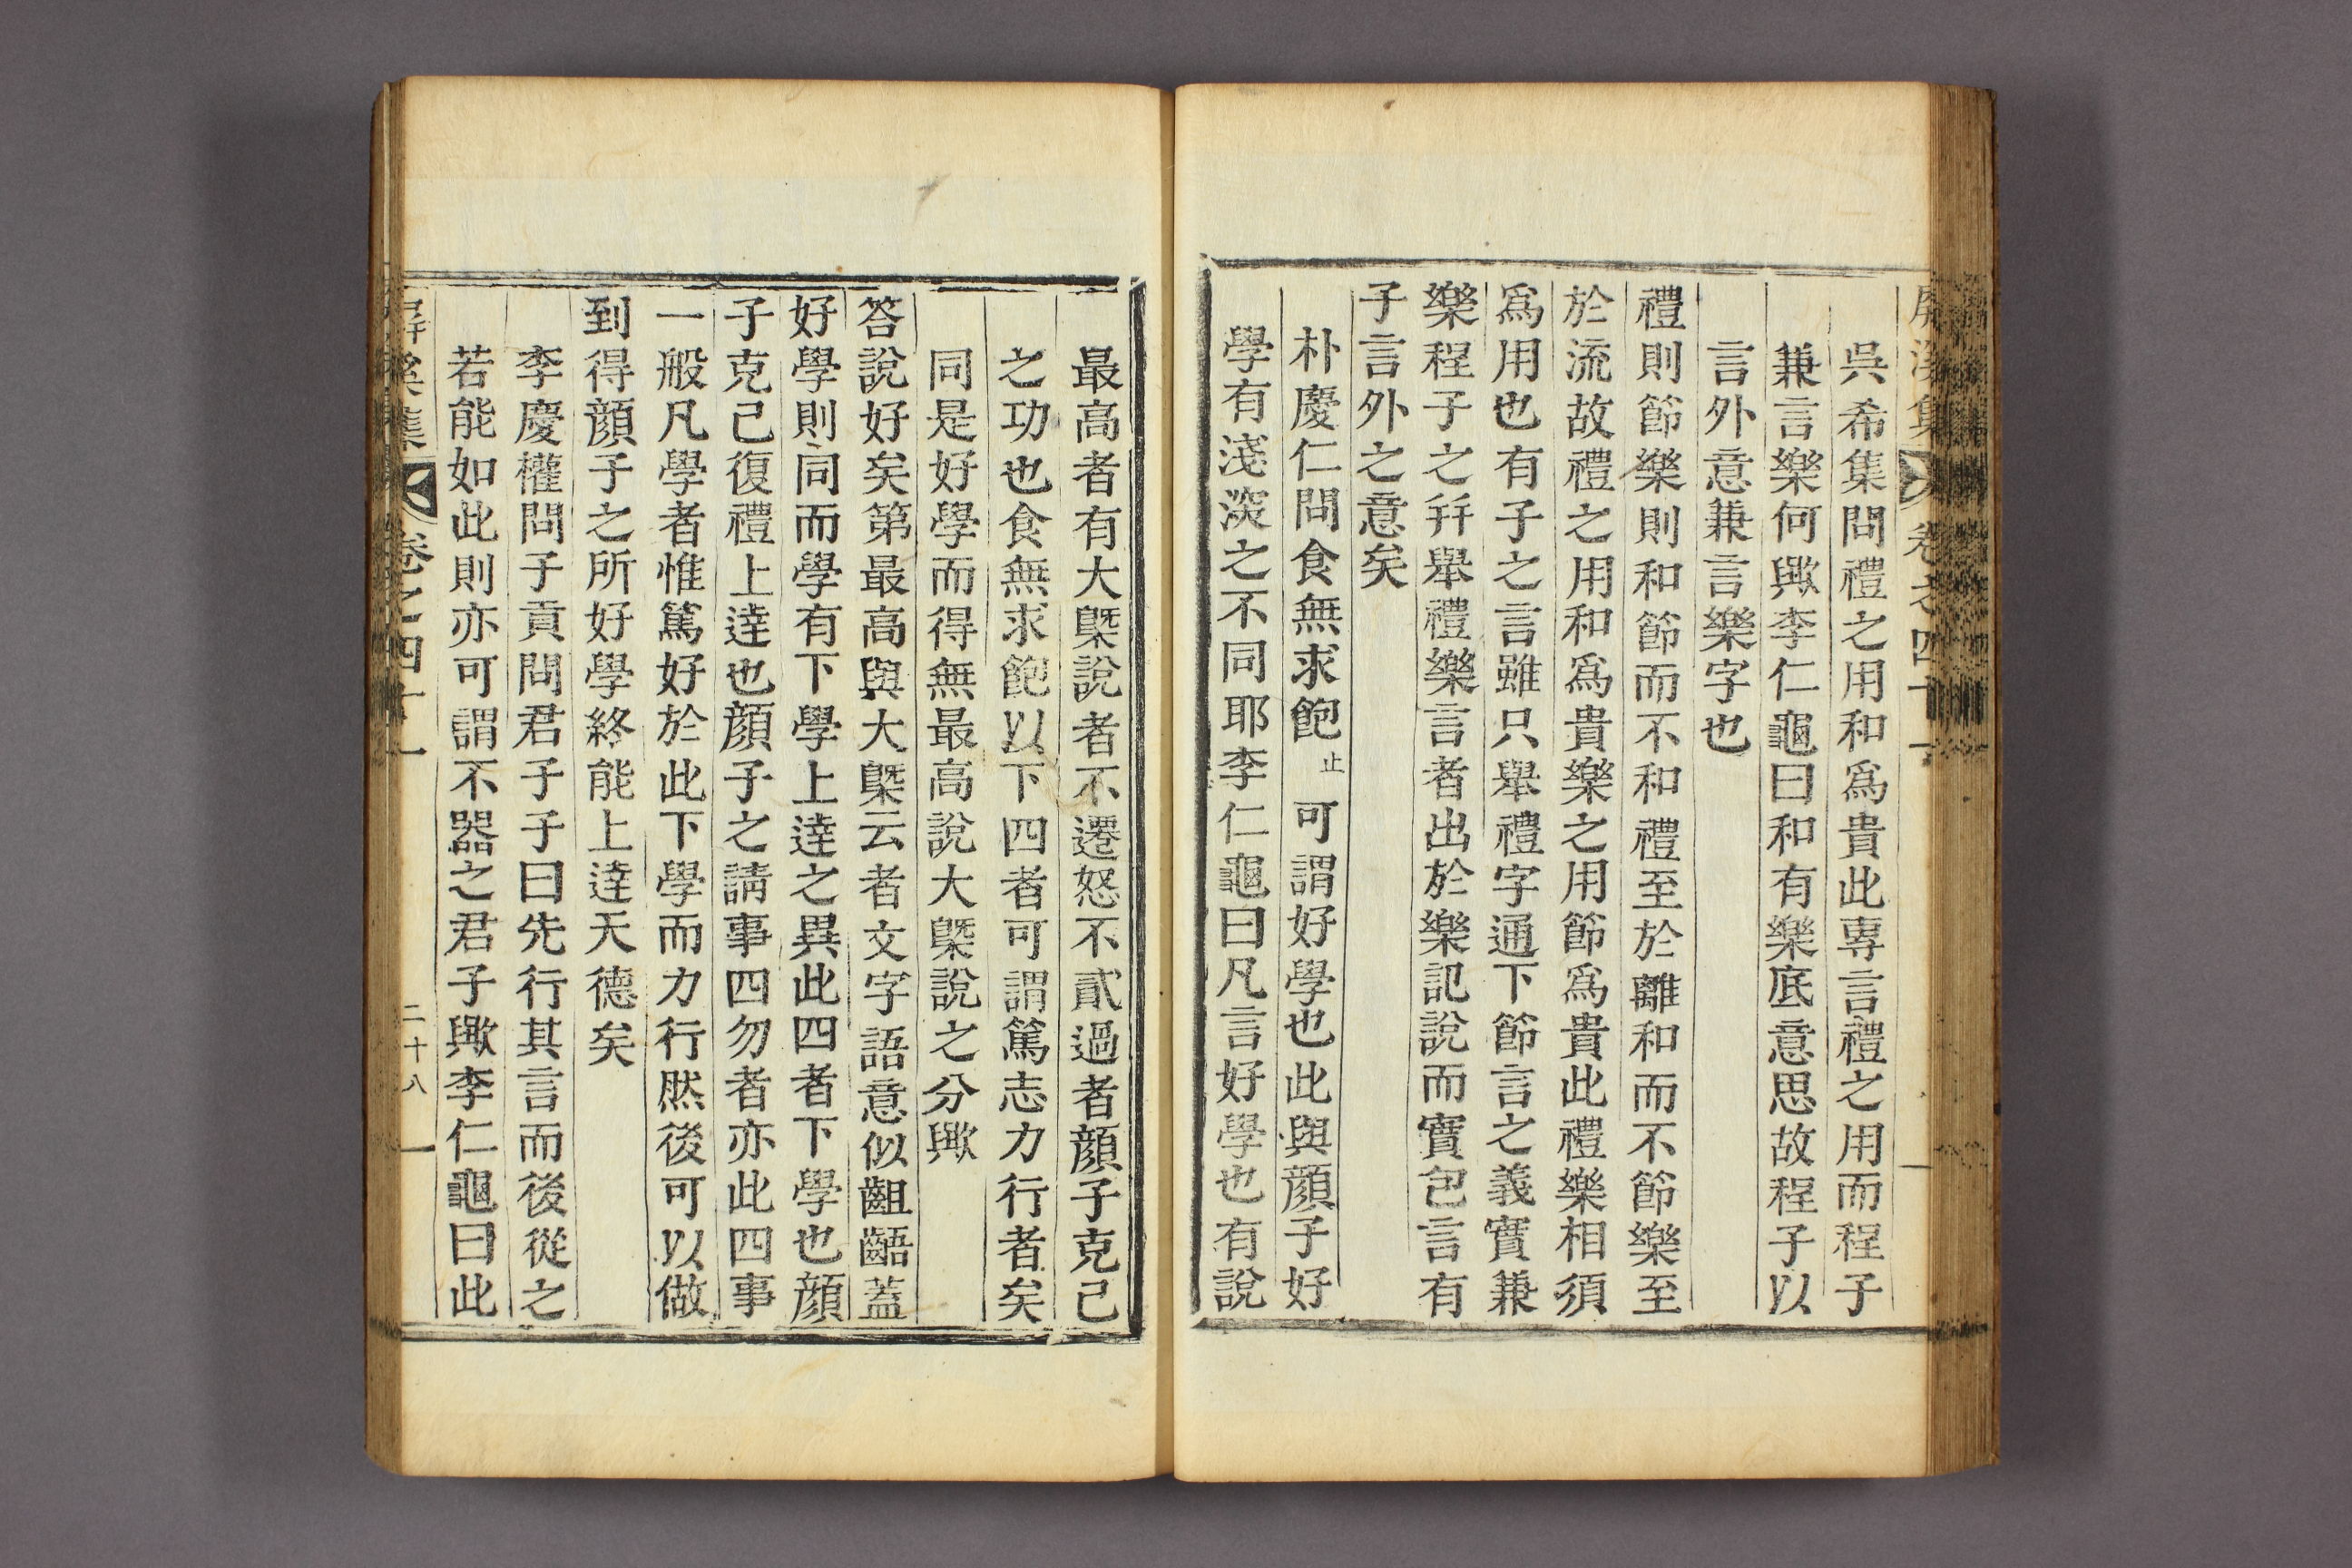 吳希集問禮之用和爲貴此專言禮之用而程子
兼言樂何歟李仁龜曰和有樂底意思故程子以
言外意兼言樂字也
禮則節樂則和節而不和禮至於離和而不節樂至
於流故禮之用和爲貴樂之用節爲貴此禮樂相須
爲用也有子之言雖只舉禮字通下節言之義實兼
樂程子之幷舉禮樂言者出於樂記說而實包言有
子言外之意矣
朴慶仁問食無求飽止可謂好學也此與顔子好
學有淺深之不同耶李仁龜曰凡言好學也有說
最高者有大槩說者不遷怒不貳過者顔子克己
之功也食無求飽以下四者可謂篤志力行者矣
同是好學而得無最高說大槩說之分歟
答說好矣第最高與大槩云者文字語意似齟齬蓋
好學則同而學有下學上達之異此四者下學也顔
子克己復禮上達也顔子之請事四勿者亦此四事
一般凡學者惟篤好於此下學而力行然後可以做
到得顔子之所好學終能上達天德矣
李慶權問子貢問君子子曰先行其言而後從之
若能如此則亦可謂不器之君子歟李仁龜曰此
屛溪集 卷之四十一 二十八